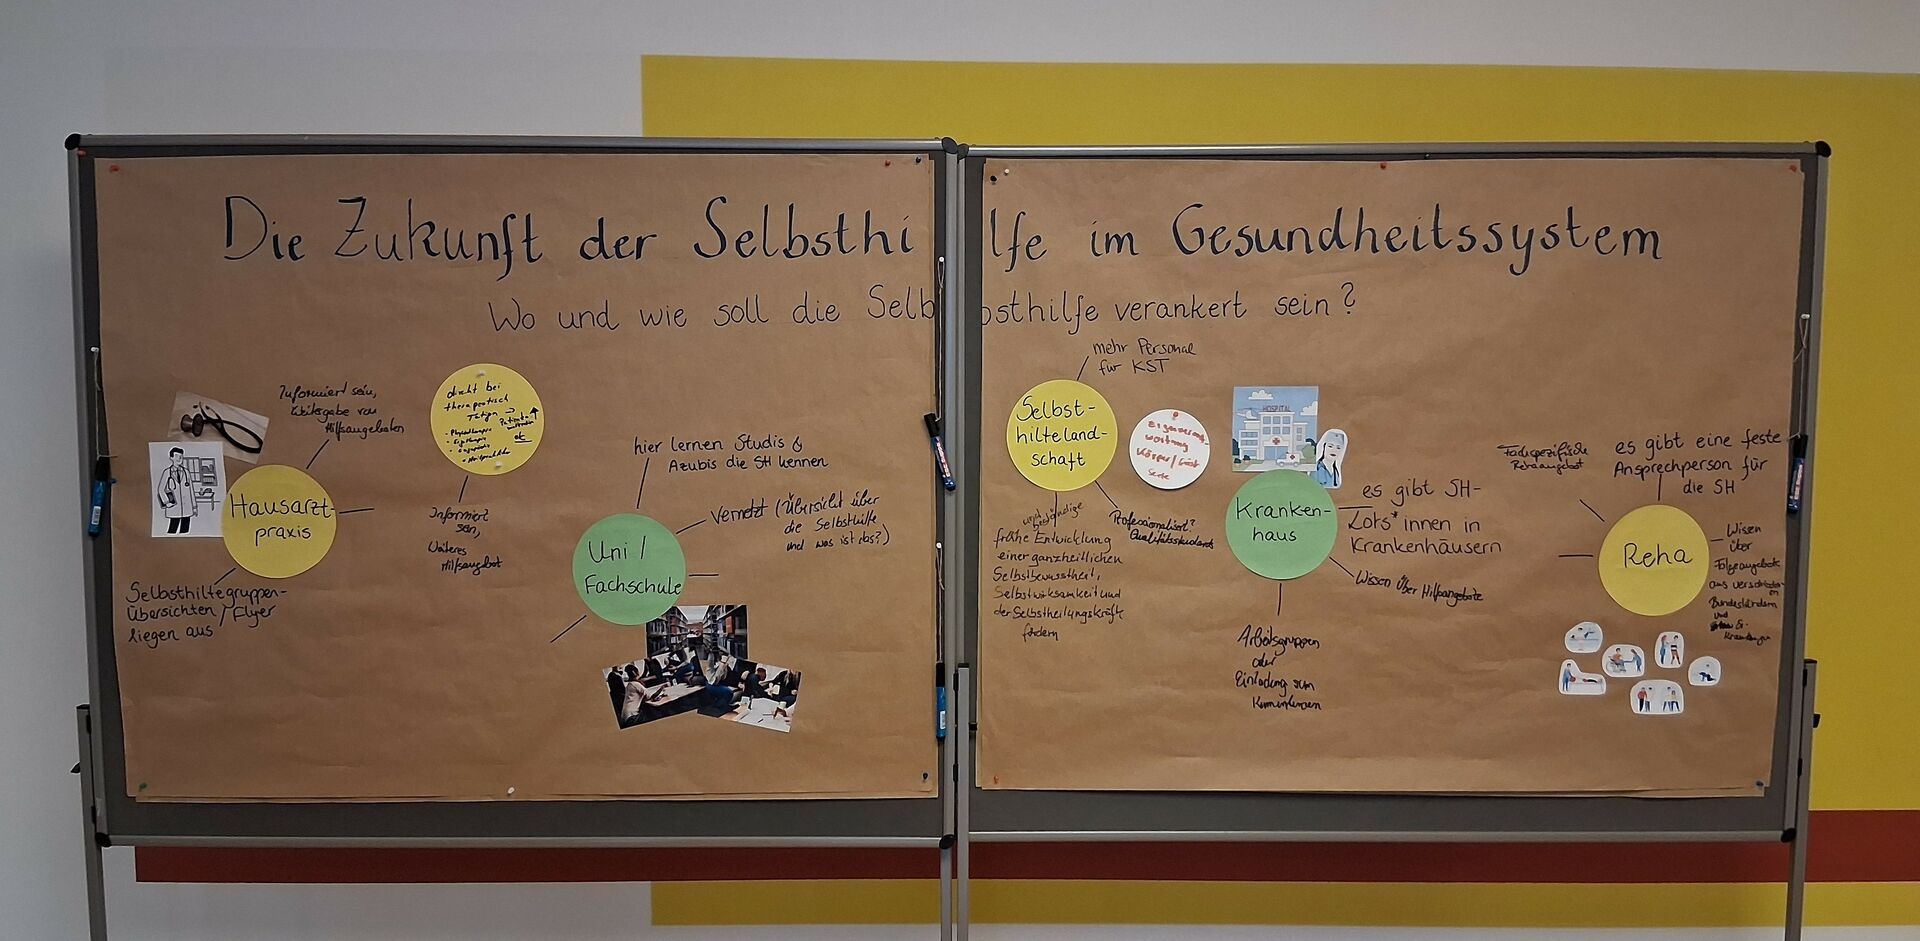 Die Zukunft der Selbsthi lfe im Gesundheitssystem
Wo und wie soll die Selb bsthilfe verankert sein?
Informiert sein,
Weitergabe von
Hilfsangeboten
Hausarzt-
praxis
Selbsthilfegruppen-
Übersichten / Flyer
liegen aus
direkt bei
therapeutisch
Tätigen →
• Physiotherapie
• Ergotherapie
Informiert
sein,
Weiteres
Hilfsangebot
hier lernen Studis &
Azubis die SH kennen
Vernetzt (Übersicht über
die Selbsthilfe
und was ist das?)
Uni /
Fachschule
mehr Personal
für KST
Selbst-
hilfeland-
schaft
Eigenverant-
wortung
Körper/Geist
Seele
und
beständige
frühe Entwicklung
einer ganzheitlichen
Selbstbewusstheit,
Selbstwirksamkeit und
der Selbstheilungskräfte
fördern
Professionalisiert?
Qualitätsstandards
HOSPITAL
Kranken-
haus
es gibt SH-
Lots*innen in
Krankenhäusern
Wissen über Hilfsangebote
Arbeitsgruppen
oder
Einladung zum
Fachspezifische
Rehaangebot
es gibt eine feste
Ansprechperson für
die SH
Reha
Wissen
über
Folgeangebote
aus verschieden-
en
Bundesländern
und